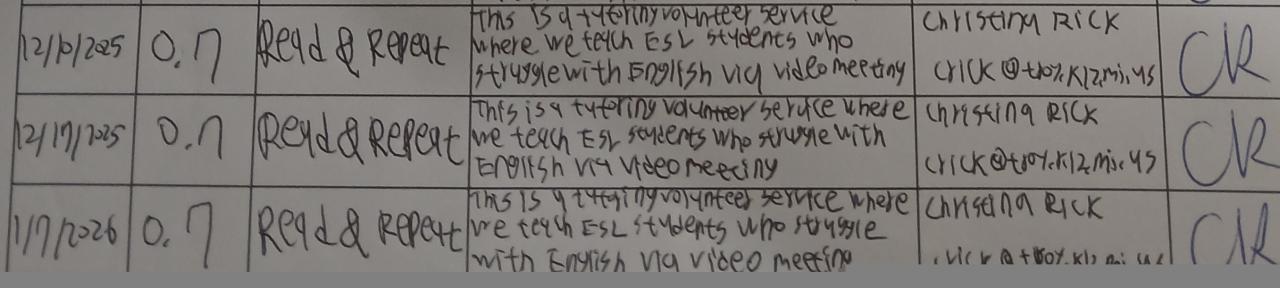 12/10/2025 0.7 Read & Repeat This is a tutoring volunteer service Christina Rick CR
where we teach ESL students who
struggle with English via video meeting crick@troy.k12.mi.us
12/17/2025 0.7 Read & Repeat This is a tutoring volunteer service where Christina Rick CR
we teach ESL students who struggle with
English via video meeting crick@troy.k12.mi.us
1/7/2026 0.7 Read & Repeat This is a tutoring volunteer service where Christina Rick CR
we teach ESL students who struggle
with English via video meeting crick@troy.k12.mi.us